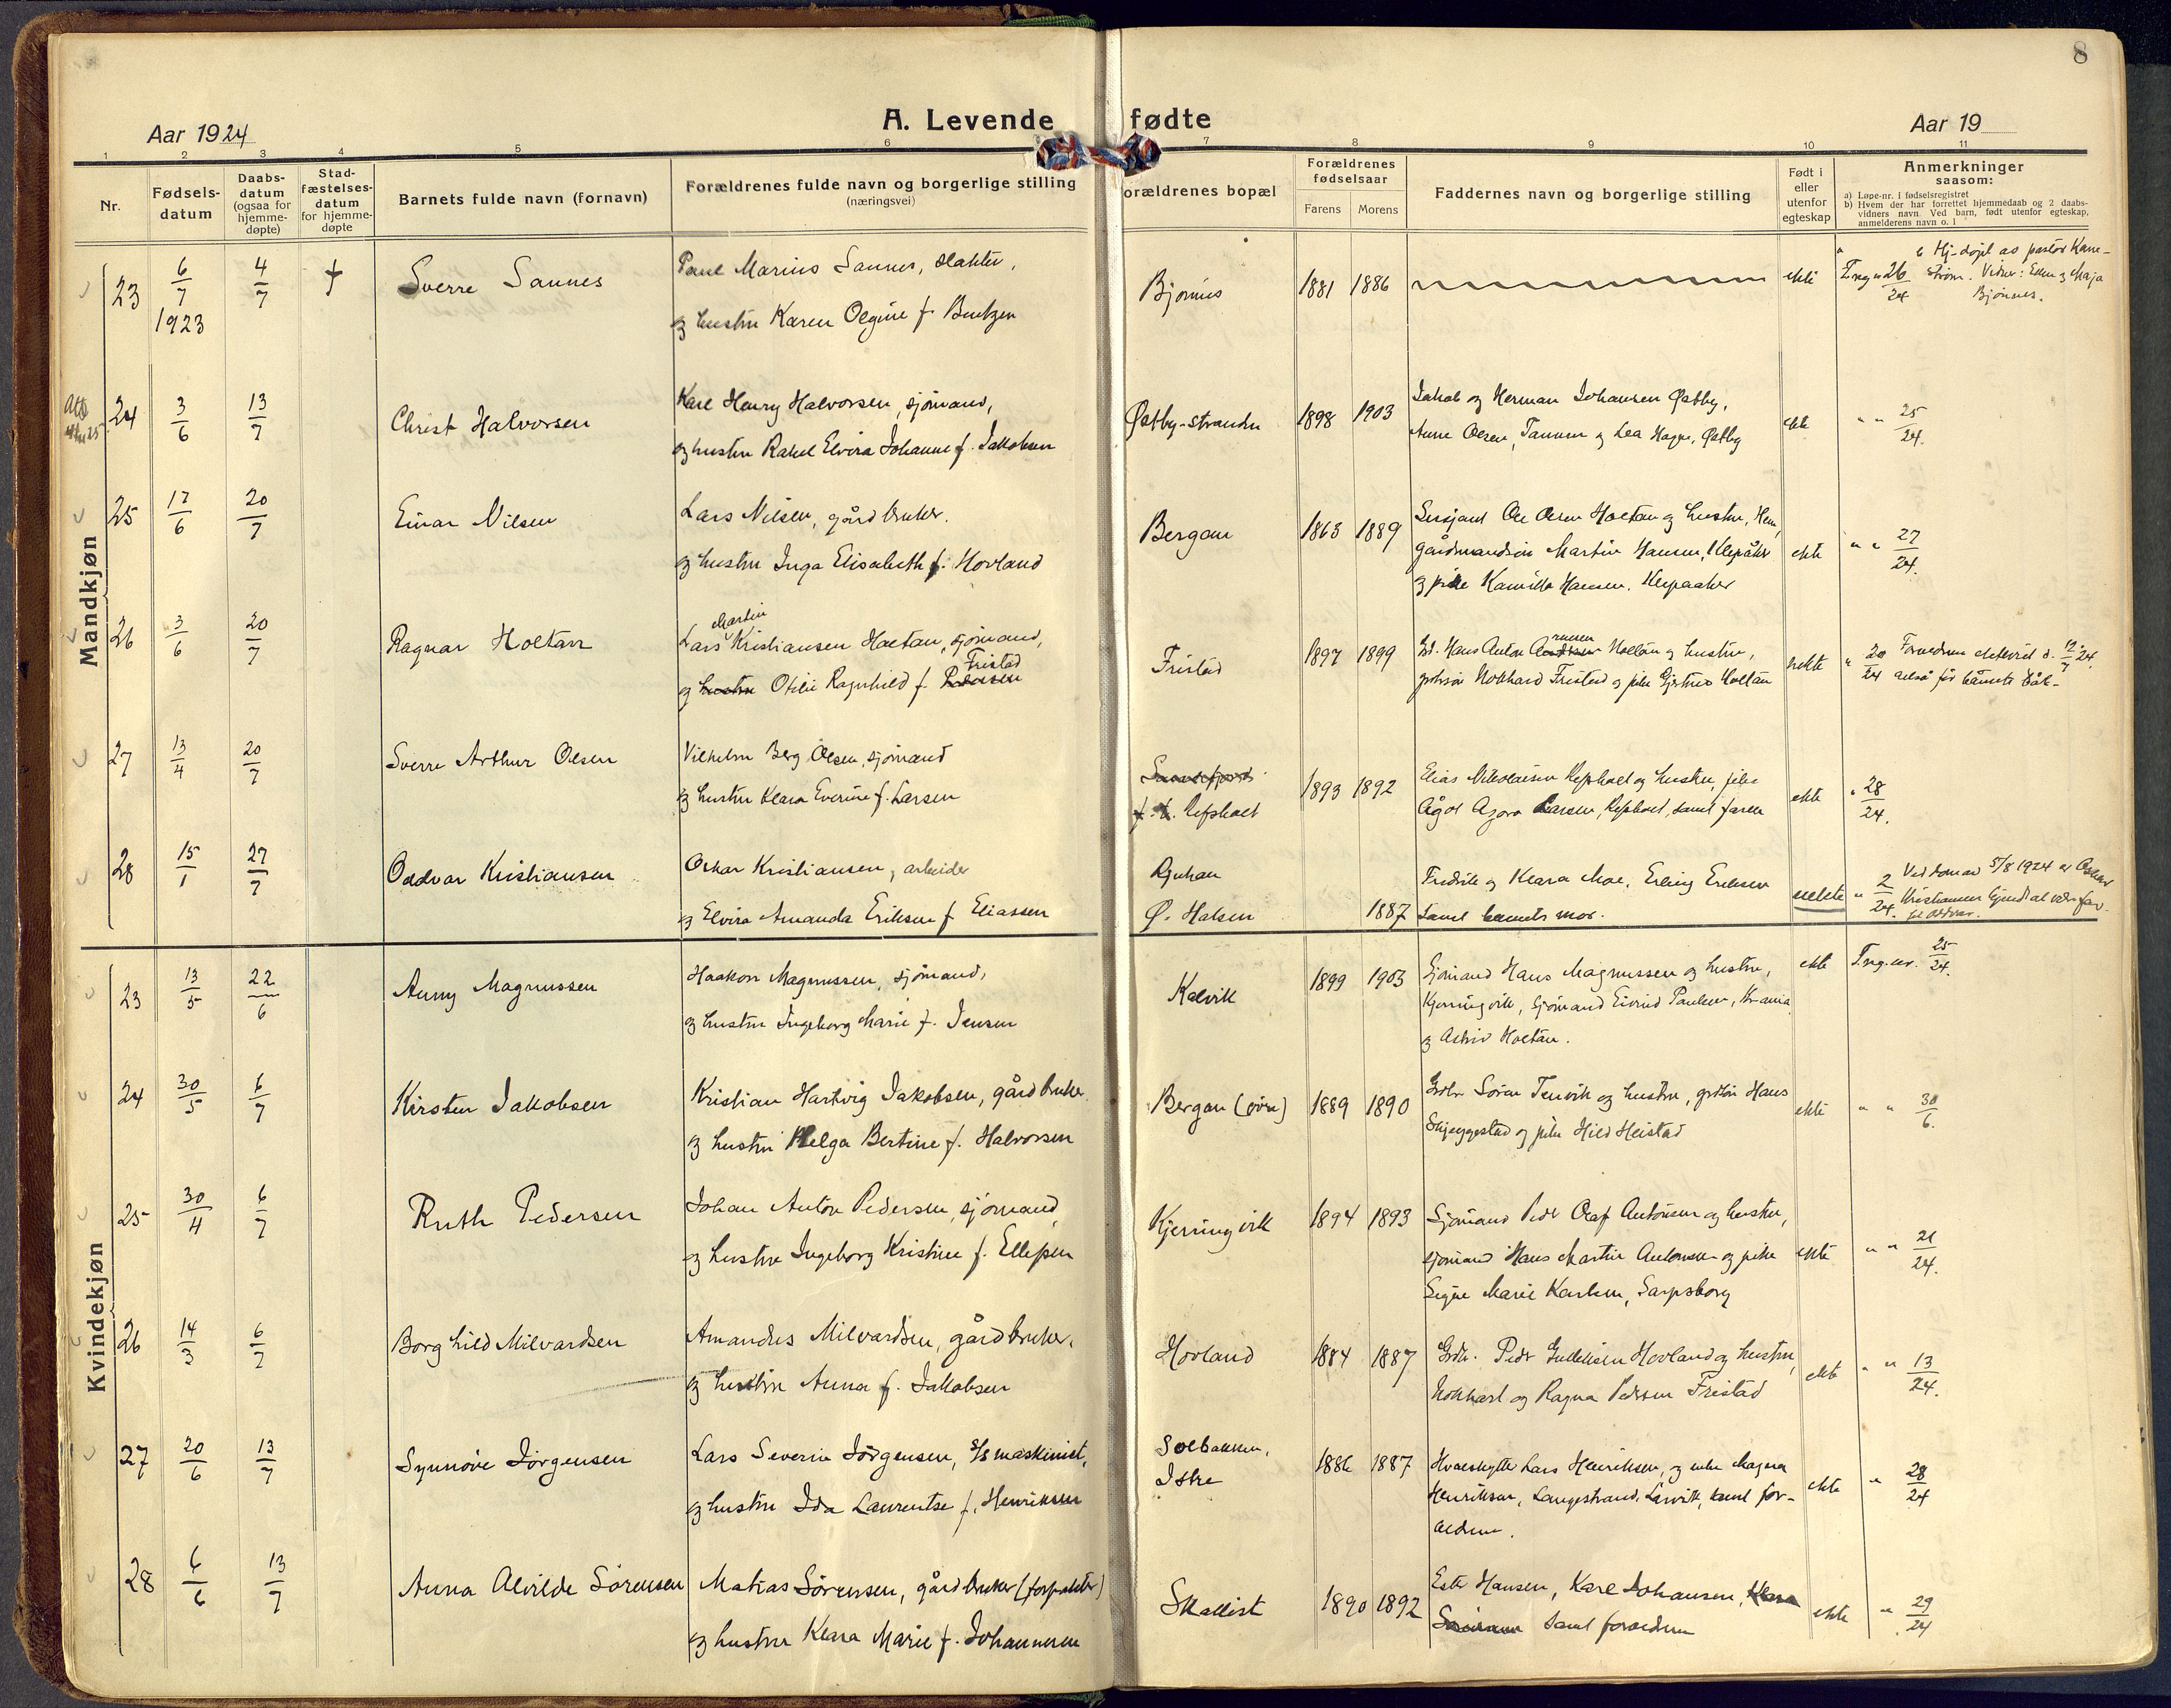 8
A. Levende fødte
Aar 1924
Aar 19
1 2 3 4 5 6 7 8 9 10 11
Nr.
Fødsels-
datum
Daabs-
datum
(ogsaa for
hjemme-
døpte)
Stad-
fæstelses-
datum
for hjemme-
døpte
Barnets fulde navn (fornavn)
Forældrenes fulde navn og borgerlige stilling
(næringsvei)
orældrenes bopæl
Forældrenes
fødselsaar
Farens Morens
Faddernes navn og borgerlige stilling
Født i
eller
utenfor
egteskap
Anmerkninger
saasom:
a) Løpe-nr. i fødselsregistret
b) Hvem der har forrettet hjemmedaab og 2 daabs-
vidners navn. Ved barn, født utenfor egteskap,
anmelderens navn o. l
Mandkjøn
23 6/7 1923 4/7 † Sverre Sannes
Paul Marius Sannes, slakter,
og hustru Karen Olgine f. Bentzen
Bjønnes 1881 1886 ekte
b Hj-døpt av pastor Kam-
T.reg n 26/24 strøm. Vidner: Ellen og Maja
Bjønnes.
24 3/6 13/7 Christ Halvorsen
Karl Henry Halvorsen, sjømand,
og hustru Rakel Elvira Johanne f. Jakobsen
Østby-stranden 1898 1903
Jakob og Herman Johansen Østby,
Anne Olsen, Tanum og Lea Hagen, Østby
ekte " " 25/24.
25 17/6 20/7 Einar Nilsen
Lars Nilsen, gårdbruker.
og hustru Inga Elisabeth f. Hovland
Bergan 1863 1889
Sersjant Ole Olsen Holtan og hustru, Hem,
gårdmandsøn Martin Hansen, Klepåker
og pike Kamilla Hansen, Klepaaker
ekte " " 27/24.
26 3/6 20/7 Ragnar Holtan
Martin
Lars Kristiansen Holtan, sjømand,
Fristad
og hustru Otilie Ragnhild f. Pedersen
Fristad 1897 1899
Gb. Hans Anton Holtan og hustru,
Nokhard Fristad og pike Gjertrud Holtan
uekte " 20/24 Forældrene ektevied d. 12/7 24,
altså før barnets dåb-
27 13/4 20/7 Sverre Arthur Olsen
Vilhelm Berg Olsen, sjømand
og hustru Klara Everine f. Larsen
Sandefjord
f. t. Refsholt 1893 1892
Elias Nikolaisen Refsholt og hustru, pike
Ågot Agora Larsen, Refsholt, samt faren
ekte " 28/24.
28 15/1 27/7 Oddvar Kristiansen
Oskar Kristiansen, arbeider
og Elvira Amanda Eriksen f. Eliassen
Rjukan
Ø. Halsen 1887
Fredrik og Klara Moe, Erling Eriksen
samt barnets mor.
uekte " 2/24. Ved dom av 5/8 1924 er Oskar
Kristiansen kjendt at være far
til Oddvar.
Kvindekjøn
23 13/5 22/6 Anny Magnussen
Haakon Magnussen, sjømand,
og hustru Ingeborg Marie f. Jensen
Kalvik 1899 1903
Sjømand Hans Magnussen og hustru,
Kjerringvik, sjømand Eivind Paulsen, Kr-ania
og Astrid Holtan.
ekte T.reg.nr. 25/24.
24 30/5 6/7 Kirsten Jakobsen
Kristian Hartvig Jakobsen, gårdbruker.
og hustru Helga Bertine f. Halvorsen
Bergan (øvre) 1889 1890
Grdbr. Søren Tenvik og hustru, grdsøn Hans
Skjeggestad og pike Hild Heistad
ekte " " 30/6.
25 30/4 6/7 Ruth Pedersen
Johan Anton Pedersen, sjømand
og hustru Ingeborg Kristine f. Ellefsen
Kjerringvik 1894 1893
Sjømand Peder Olaf Antonsen og hustru,
sjømand Hans Martin Antonsen og pike
Signe Marie Karlsen, Sarpsborg
ekte " " 21/24.
26 14/3 6/7 Borghild Milvardsen
Amandus Milvardsen, gårdbruker.
og hustru Anna f. Jakobsen
Hovland 1884 1887
Grdbr. Peder Gulliksen Hovland og hustru,
Nokhart og Ragna Pedersen Fristad
ekte " " 13/24.
27 20/6 13/7 Synnøve Jørgensen
Lars Severin Jørgensen, s/s maskinist,
og hustru Ida Laurentse f. Henriksen
Solbakken,
Istre 1886 1887
Hvalskytter Lars Henriksen, og enke Magna
Henriksen, Langestrand, Larvik, samt for-
ældrene.
ekte " 28/24
28 6/6 13/7 Anna Alvilde Sørensen
Matias Sørensen, gårdbruker (forpakter)
og hustru Klara Marie f. Johannesen
Skallist 1890 1892
Ester Hansen, Karl Johansen, Klara
Sørensen samt forældrene
ekte " 29/24